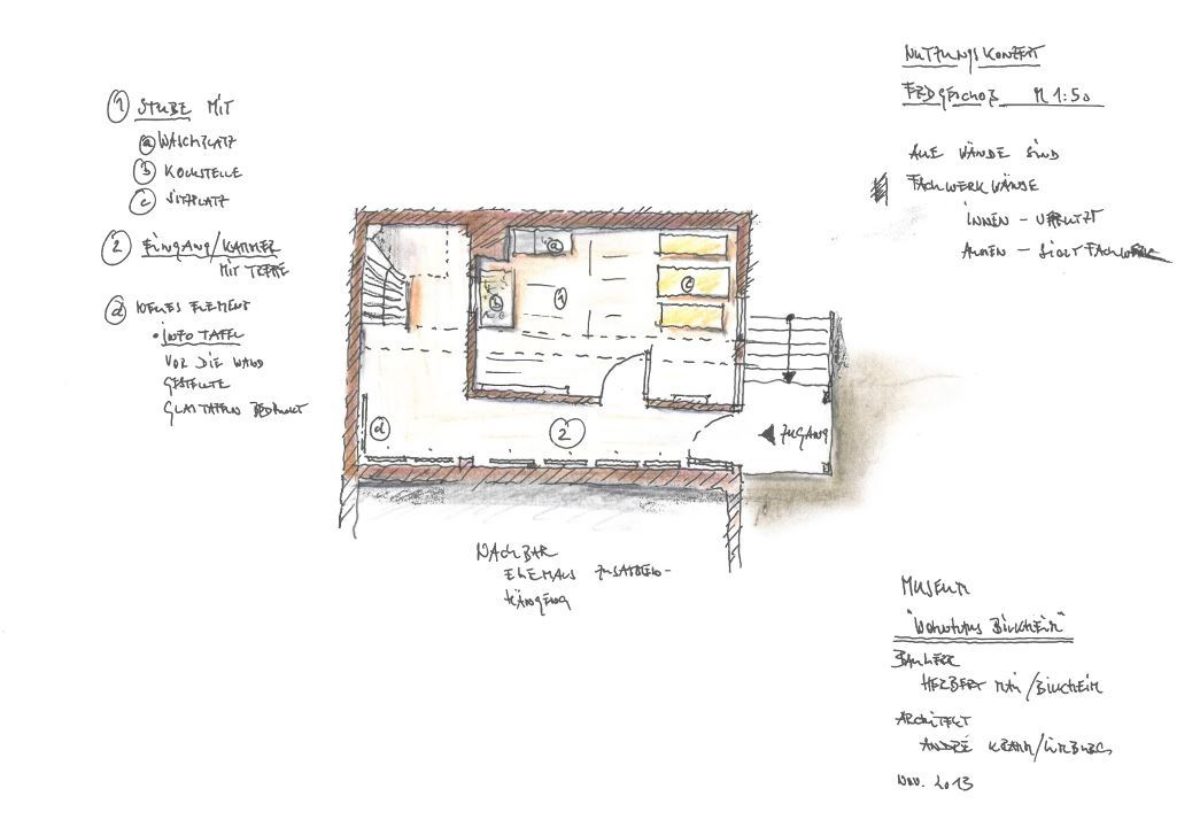 NUTZUNGSKONZEPT
ERDGESCHOß M 1:50
ALLE WÄNDE SIND
FACHWERKWÄNDE
INNEN – VERPUTZT
AUßEN – SICHTFACHWERK
1 STUBE MIT
a WASCHPLATZ
b KOCHSTELLE
c SITZPLATZ
2 EINGANG/KAMMER
MIT TREPPE
d NEUES ELEMENT
• INFO TAFEL
VOR DIE WAND
GESTELLTE
GLASTAFELN BEDRUCKT
a
b
1
c
d
2
ZUGANG
NACHBAR
EHEMALS ZUSAMMEN-
HÄNGEND
MUSEUM
BAUHERR
HERBERT
ARCHITEKT
ANDRÉ KRAMM/LIMBURG
NOV. 2013